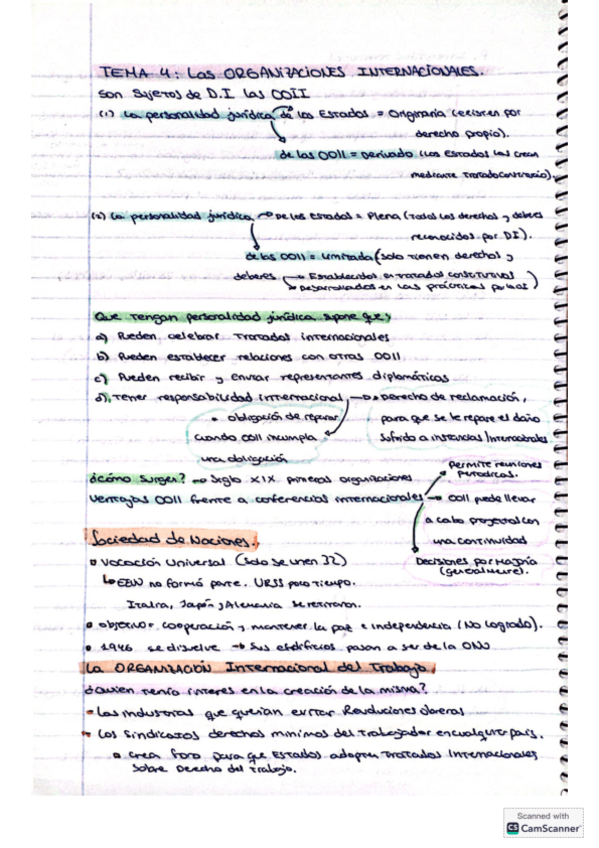 TEMA 4: Las ORGANIZACIONES INTERNACIONALES.
Son sujetos de D.I las OOII
(1) La personalidad jurídica de los Estados = Originaria (existen por
derecho propio).
de las OOII = Derivada (Los Estados las crean
mediante Tratado constitutivo).
(2) La personalidad jurídica → De los Estados = Plena (Todos los derechos y deberes
reconocidos por DI).
de las OOII = Limitada (solo tienen derechos y
deberes → Establecidos en tratados constitutivos
→ Desarrollados en las prácticas )
Que tengan personalidad jurídica supone que:
a) Pueden celebrar Tratados internacionales
b) Pueden establecer relaciones con otras OOII
c) Pueden recibir y enviar representantes diplomáticos
d) Tener responsabilidad internacional → Derecho de reclamación,
• obligación de reparar
para que se le repare el daño
cuando OOII incumpla
sufrido a instancias Internacionales
una obligación
Permite reuniones
periodicas.
¿Cómo surgen? → Siglo XIX primeras organizaciones
Ventajas OOII frente a conferencias internacionales → OOII puede llevar
a cabo proyectos con
una continuidad
Decisiones por Mayoría
(generalmente).
Sociedad de Naciones.
• Vocación Universal (Solo se unen 32)
↳ EEUU no formó parte. URSS poco tiempo.
Italia, Japón y Alemania se retiraron.
• objetivo = cooperación y mantener la paz e independencia (No logrado).
• 1946 se disuelve → Sus edificios pasan a ser de la ONU
La ORGANIZACIÓN Internacional del Trabajo.
¿Quien tenía interes en la creación de la misma?
- Las industrias que querían evitar Revoluciones obreras
- Los Sindicatos derechos minimos del trabajador en cualquier país.
• Crea foro para que Estados adopten Tratados Internacionales
sobre Derecho del Trabajo.
Scanned with
CS CamScanner